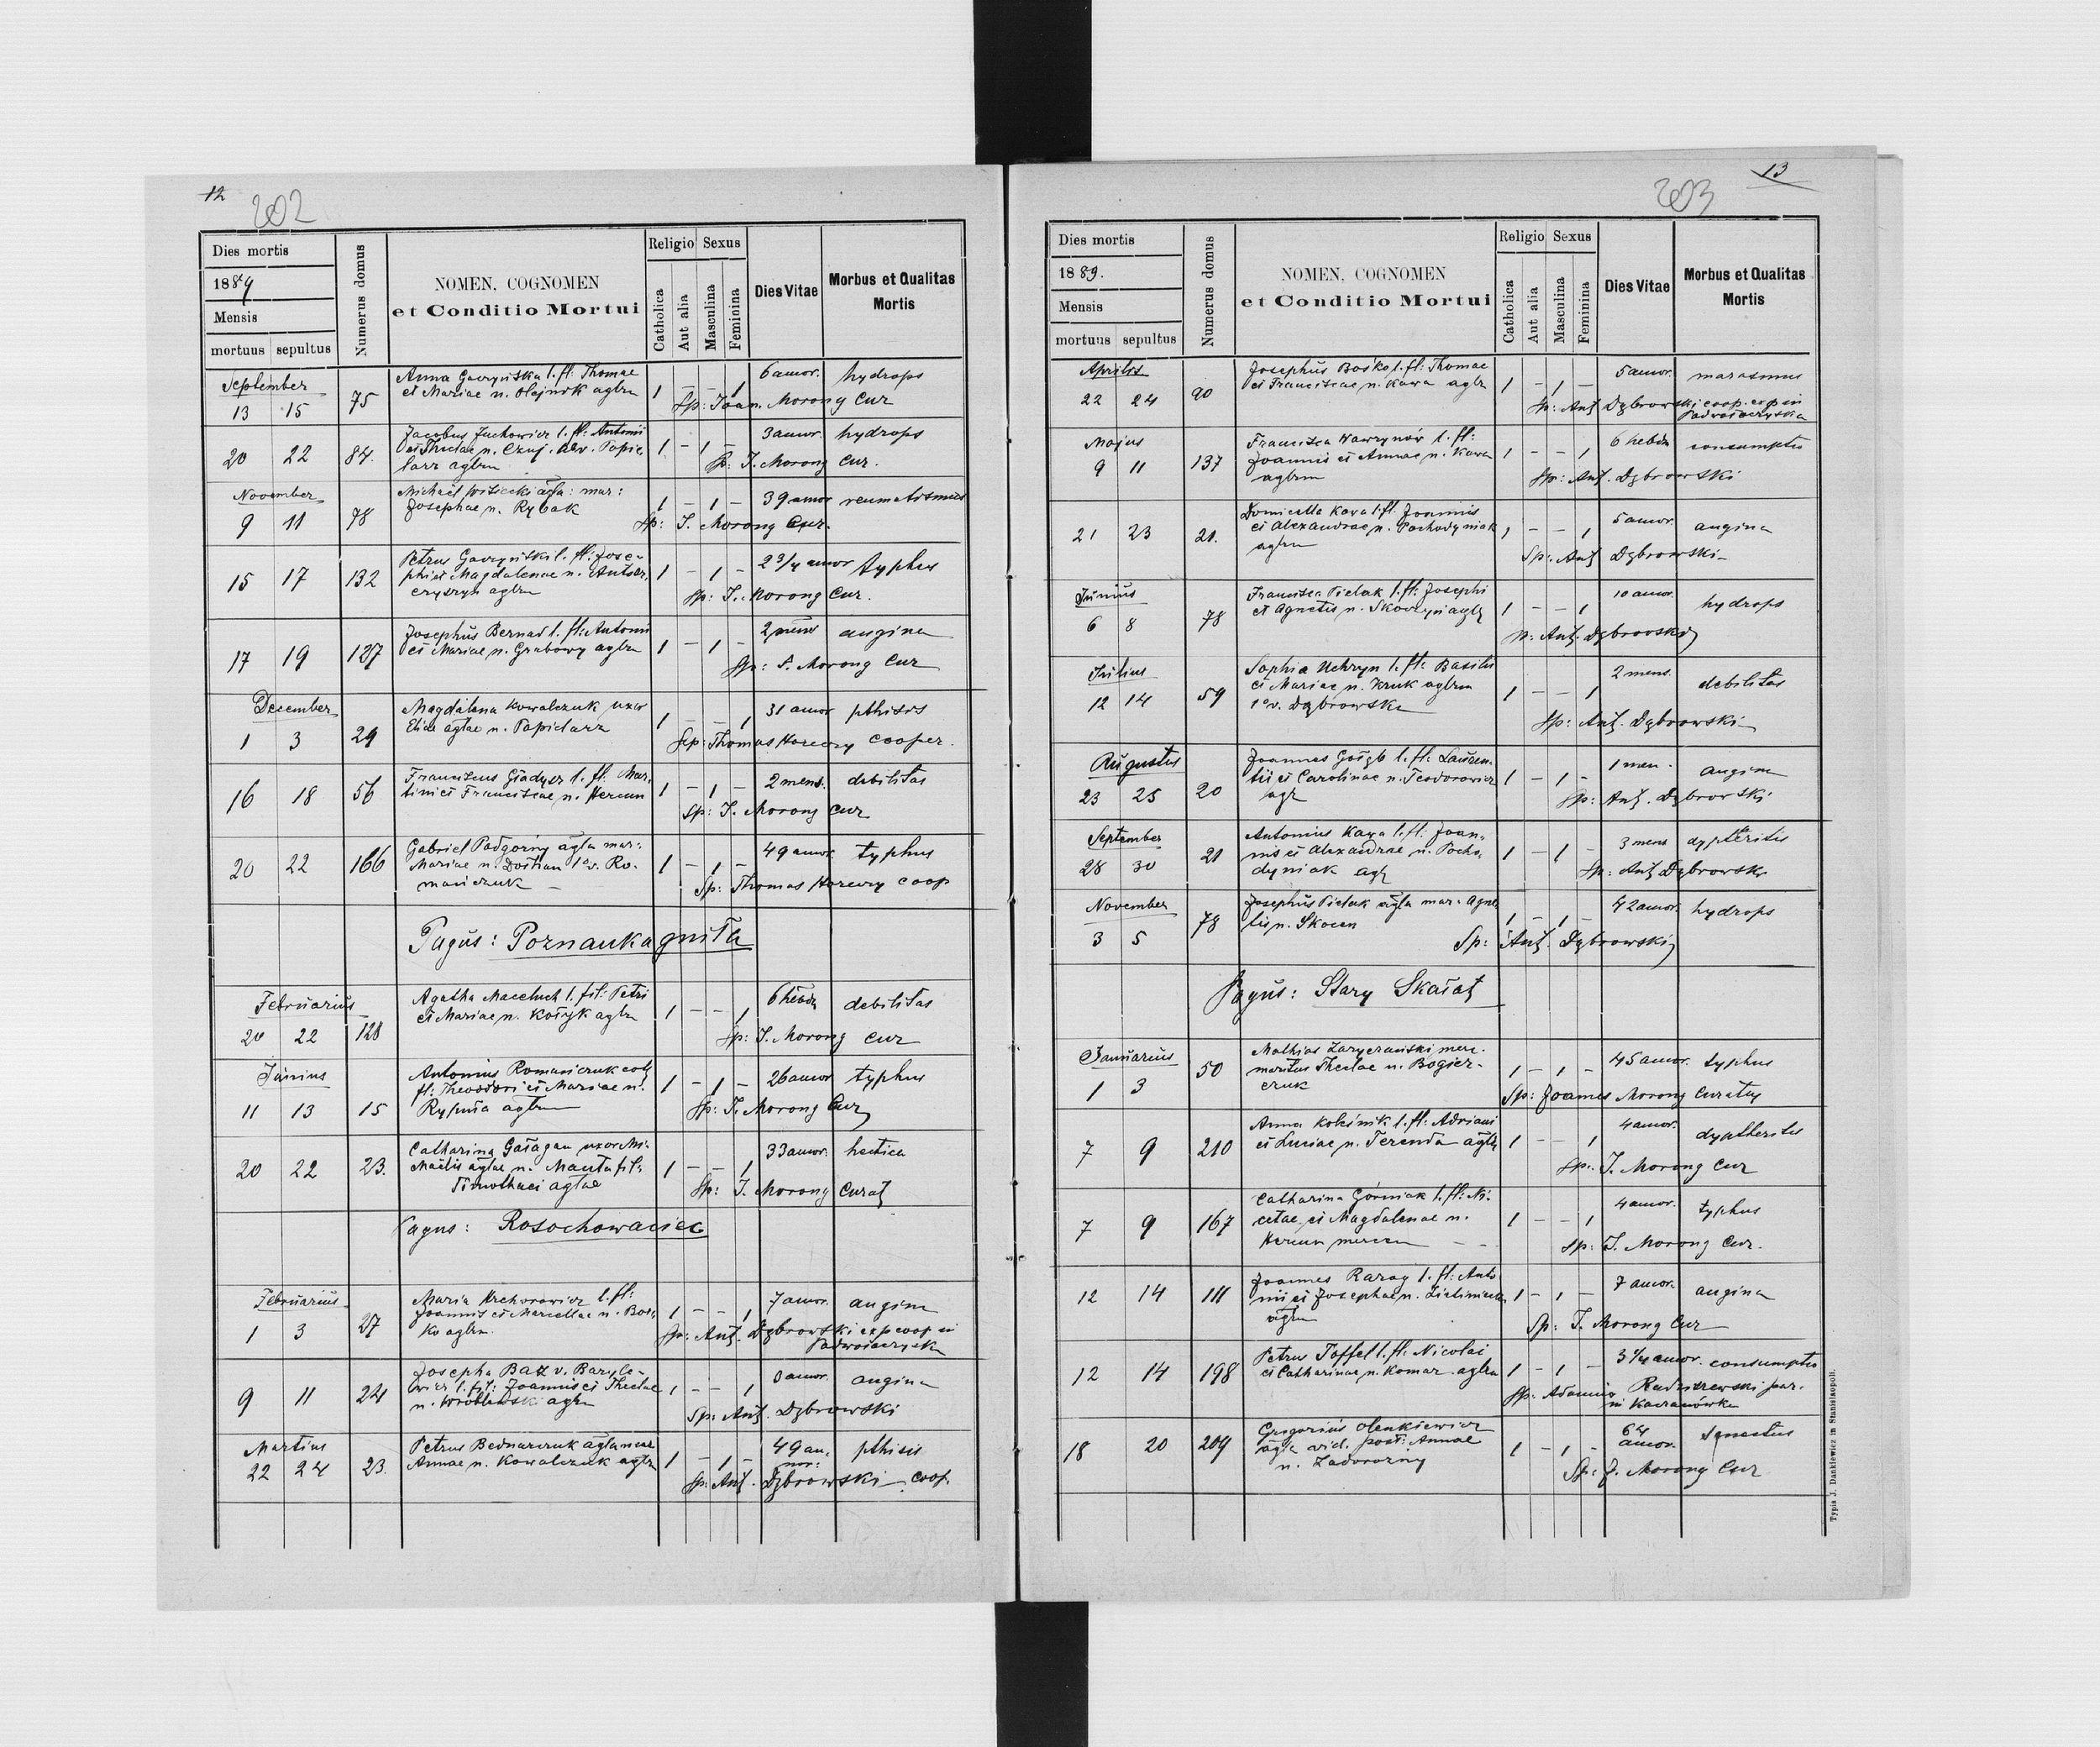 12
202
Dies mortis
1889
Mensis
mortuus sepultus
Numerus domus
NOMEN, COGNOMEN
et Conditio Mortui
Religio Sexus
Catholica
Aut alia
Masculina
Feminina
Dies Vitae
Morbus et Qualitas
Mortis
September
13 15 75
Anna Gawryńska l. fl: Thomae
et Mariae n. Olejnik agbrn
1 – – 1
6 annor. hydrops
Sp: Joan. Morong Cur
20 22 84.
Jacobus Juchowicz l. fl: Antonii
et Theclae n. Czuj. Papie
larz agbrn
1 – 1 –
3 annor. hydrops
Sp. J. Morong Cur.
November
9 11 78
Michael agla: mar:
Josephae n. Rybak
1 – 1 –
39 annor reumatismus
Sp: J. Morong Cur.
15 17 132
Petrus Gawryński l. fl: Jose-
phi et Magdalenae n.
agbrn
1 – 1 –
2 3/4 annor typhus
Sp: J. Morong Cur.
17 19 127
Josephus Bernad l. fl: Antonii
et Mariae n. Grabowy agbrn
1 – 1 –
2 mens angina
Sp: J. Morong Cur
December
1 3 29
Magdalena Kowalczuk uxor
Eliae aglae n. Papidarz
1 – – 1
31 annor pthisis
Sep: Thomas Horewy cooper.
16 18 56
Franciscus Gładysz l. fl. Mar.
tini et Franciscae n. Hercun
1 – 1 –
2 mens. debilitas
Sp: J. Morong Cur
20 22 166
Gabriel Podgórny agla mar:
Mariae n. 1o v. Ro-
mańczuk –
1 – 1 –
49 annor. typhus
Sp: Thomas Horewy coop
Pagus: Poznanka gniła
Februarius
20 22 128
Agatha Maceluch l. fil: Petri
et Mariae n. Kołyk agbrn
1 – – 1
6 hebdn debilitas
Sp: J. Morong Cur
Junius
11 13 15
Antonius Romańczuk
fl: Theodori et Mariae n.
Rypuła agbrn
1 – 1 –
26 annor typhus
Sp: J. Morong Cur
20 22 23.
Catharina Gałagan uxor Mi-
chaëlis aglae n. Manta fil:
Timothaei aglae
1 – – 1
33 annor. hectica
Sp: J. Morong Curat
Pagus: Rosochowaciec
Februarius
1 3 27
Maria Krchorowicz l. fl:
Joannis et Marcellae n. Boś.
ko agbrn.
1 – – 1
7 annor. angina
Sp: Ant. Dąbrowski exp coop in
Podwołoczyska
9 11 24
Josepha Bać v. Baryle-
wicz l. fil: Joannis et Theclae
n. Wróblewski agbrn
1 – – 1
3 annor. angina
Sp: Ant. Dąbrowski
Martius
22 24 23.
Petrus Bednarczuk agla mar
Annae n. Kowalczuk
1 – 1 –
49 an.
nor: pthisis
Sp: Ant. Dąbrowski coop.
13
203
Dies mortis
1889.
Mensis
mortuus sepultus
Numerus domus
NOMEN, COGNOMEN
et Conditio Mortui
Religio Sexus
Catholica
Aut alia
Masculina
Feminina
Dies Vitae
Morbus et Qualitas
Mortis
Aprilis
22 24 90
Josephus Bośko l. fl: Thomae
et Franciscae n. Kawa agbr
1 – 1 –
5 annor. marasmus
Sp: Ant Dąbrowski coop. exp in
Podwołoczyska
Majus
9 11 137
Francisca Wawrynów l. fl:
Joannis et Annae n. Kawa
agbrn
1 – – 1
6 hebdn consumptio
Sp: Ant. Dąbrowski
21 23 21.
Domicella Kawa l. fl Joannis
et Alexandrae n. Pochodyniak
agbrn
1 – – 1
5 annor. angina
Sp: Ant Dąbrowski –
Junius
6 8 78
Francisca Pielak l. fl: Josephi
et Agnetis n.
1 – – 1
10 annor. hydrops
Sp: Ant. Dąbrowski
Julius
12 14 59
Sophia Uchryn l. fl: Basilii
et Mariae n. Kruk agbrn
1o v. Dąbrowska
1 – – 1
2 mens. debilitas
Sp: Ant. Dąbrowski
Augustus
23 25 20
Joannes Gołąb l. fl: Lauren-
tii et Carolinae n. Teodorowicz
agr
1 – 1 –
1 men. angina
Sp: Ant. Dąbrowski
September
28 30 21
Antonius Kawa l. fl: Joan-
nis et Alexandrae n. Pocho-
dyniak agr
1 – 1 –
3 mens dyptheritis
Sp: Ant Dąbrowski
November
3 5 78
Josephus Pielak agla mar. Agne-
tis n. Skocen
1 – 1 –
42 annor. hydrops
Sp: Ant. Dąbrowski
Pagus: Stary Skałat
Januarius
1 3 50
Mathias Zaryczański merc.
maritus Theclae n. Bogier-
czuk
1 – 1 –
45 annor. typhus
Sp: Joannes Morong Curatus
7 9 210
Anna Koleśnik l. fl: Adriani
et Luciae n. Terenda
1 – – 1
4 annor. dyptheritis
Sp: J. Morong Cur
7 9 167
Catharina Górniak l. fl: Ni-
cetae et Magdalenae n.
Hercun mercen – –
1 – – 1
4 annor. typhus
Sp: J. Morong Cur.
12 14 111
Joannes Raray l. fl: Anto
nii et Josephae n.
agbrn
1 – 1 –
7 annor. angina
Sp: J. Morong Cur
12 14 198
Petrus Toffel l. fl: Nicolai
et Catharinae n. Komar. agbrn
1 – 1 –
3 1/4 annor. consumptio
Sp: Adamus Radziszewski par.
in Kaczanówka
18 20 209
Gregorius Olenkiewicz
agla vid. post: Annae
n. Zadorozny
1 – 1 –
64
annor. senectus
Sp: J. Morong Cur
Typis J. Dankiewicz in Stanislaopoli.